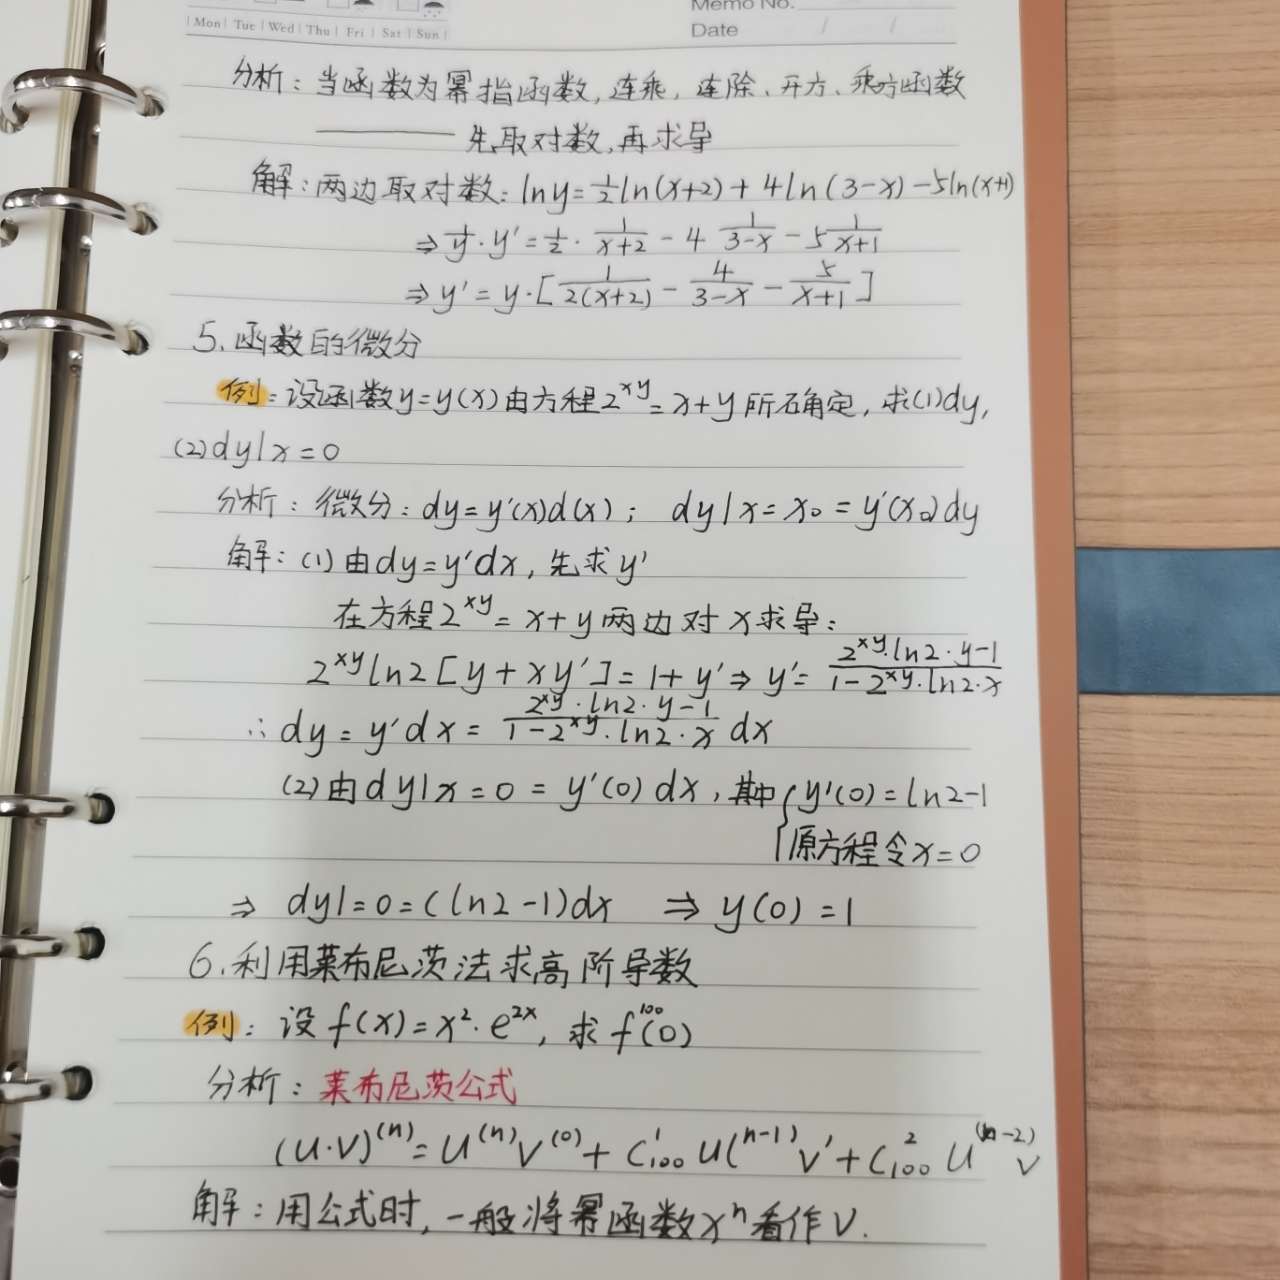 Memo No.
| Mon | Tue | Wed | Thu | Fri | Sat | Sun |
Date / /
分析：当函数为幂指函数,连乘,连除、开方、乘方函数
——— 先取对数,再求导
解：两边取对数：lny=½ln(x+2)+4ln(3-x)-5ln(x+1)
⇒ 1/y·y′=½·1/(x+2)-4 1/(3-x)-5 1/(x+1)
⇒ y′=y·[1/(2(x+2))-4/(3-x)-5/(x+1)]
5.函数的微分
例：设函数y=y(x)由方程2^xy=x+y所确定,求(1)dy,
(2)dy|x=0
分析：微分：dy=y′(x)d(x)； dy|x=x₀=y′(x₀)dy
解：(1)由dy=y′dx,先求y′
在方程2^xy=x+y两边对x求导：
2^xy ln2[y+xy′]=1+y′⇒y′=(2^xy·ln2·y-1)/(1-2^xy·ln2·x)
∴dy=y′dx=(2^xy·ln2·y-1)/(1-2^xy·ln2·x) dx
(2)由dy|x=0=y′(0)dx,其中{y′(0)=ln2-1
原方程令x=0
⇒ dy|=0=(ln2-1)dx ⇒ y(0)=1
6.利用莱布尼茨法求高阶导数
例：设f(x)=x²·e^2x,求f^100(0)
分析：莱布尼茨公式
(u·v)^(n)=u^(n)v^(0)+C¹₁₀₀u^(n-1)v′+C²₁₀₀u^(n-2)v
解：用公式时,一般将幂函数xⁿ看作v.